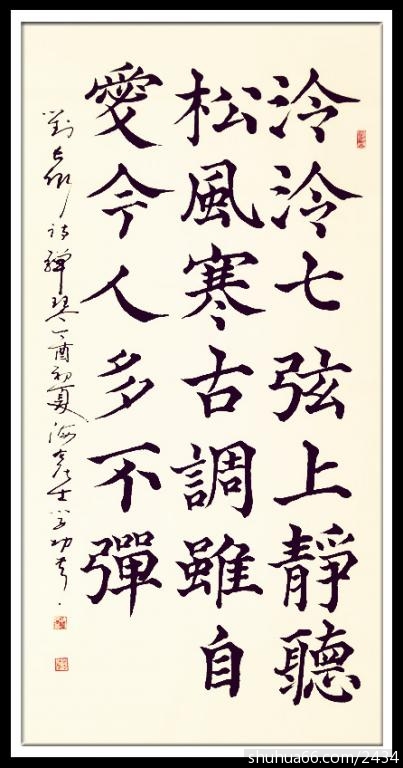 泠泠七弦上靜聽
松風寒古調雖自
愛今人多不彈
劉長卿詩彈琴丁酉初夏海
shuhua66.com/2434